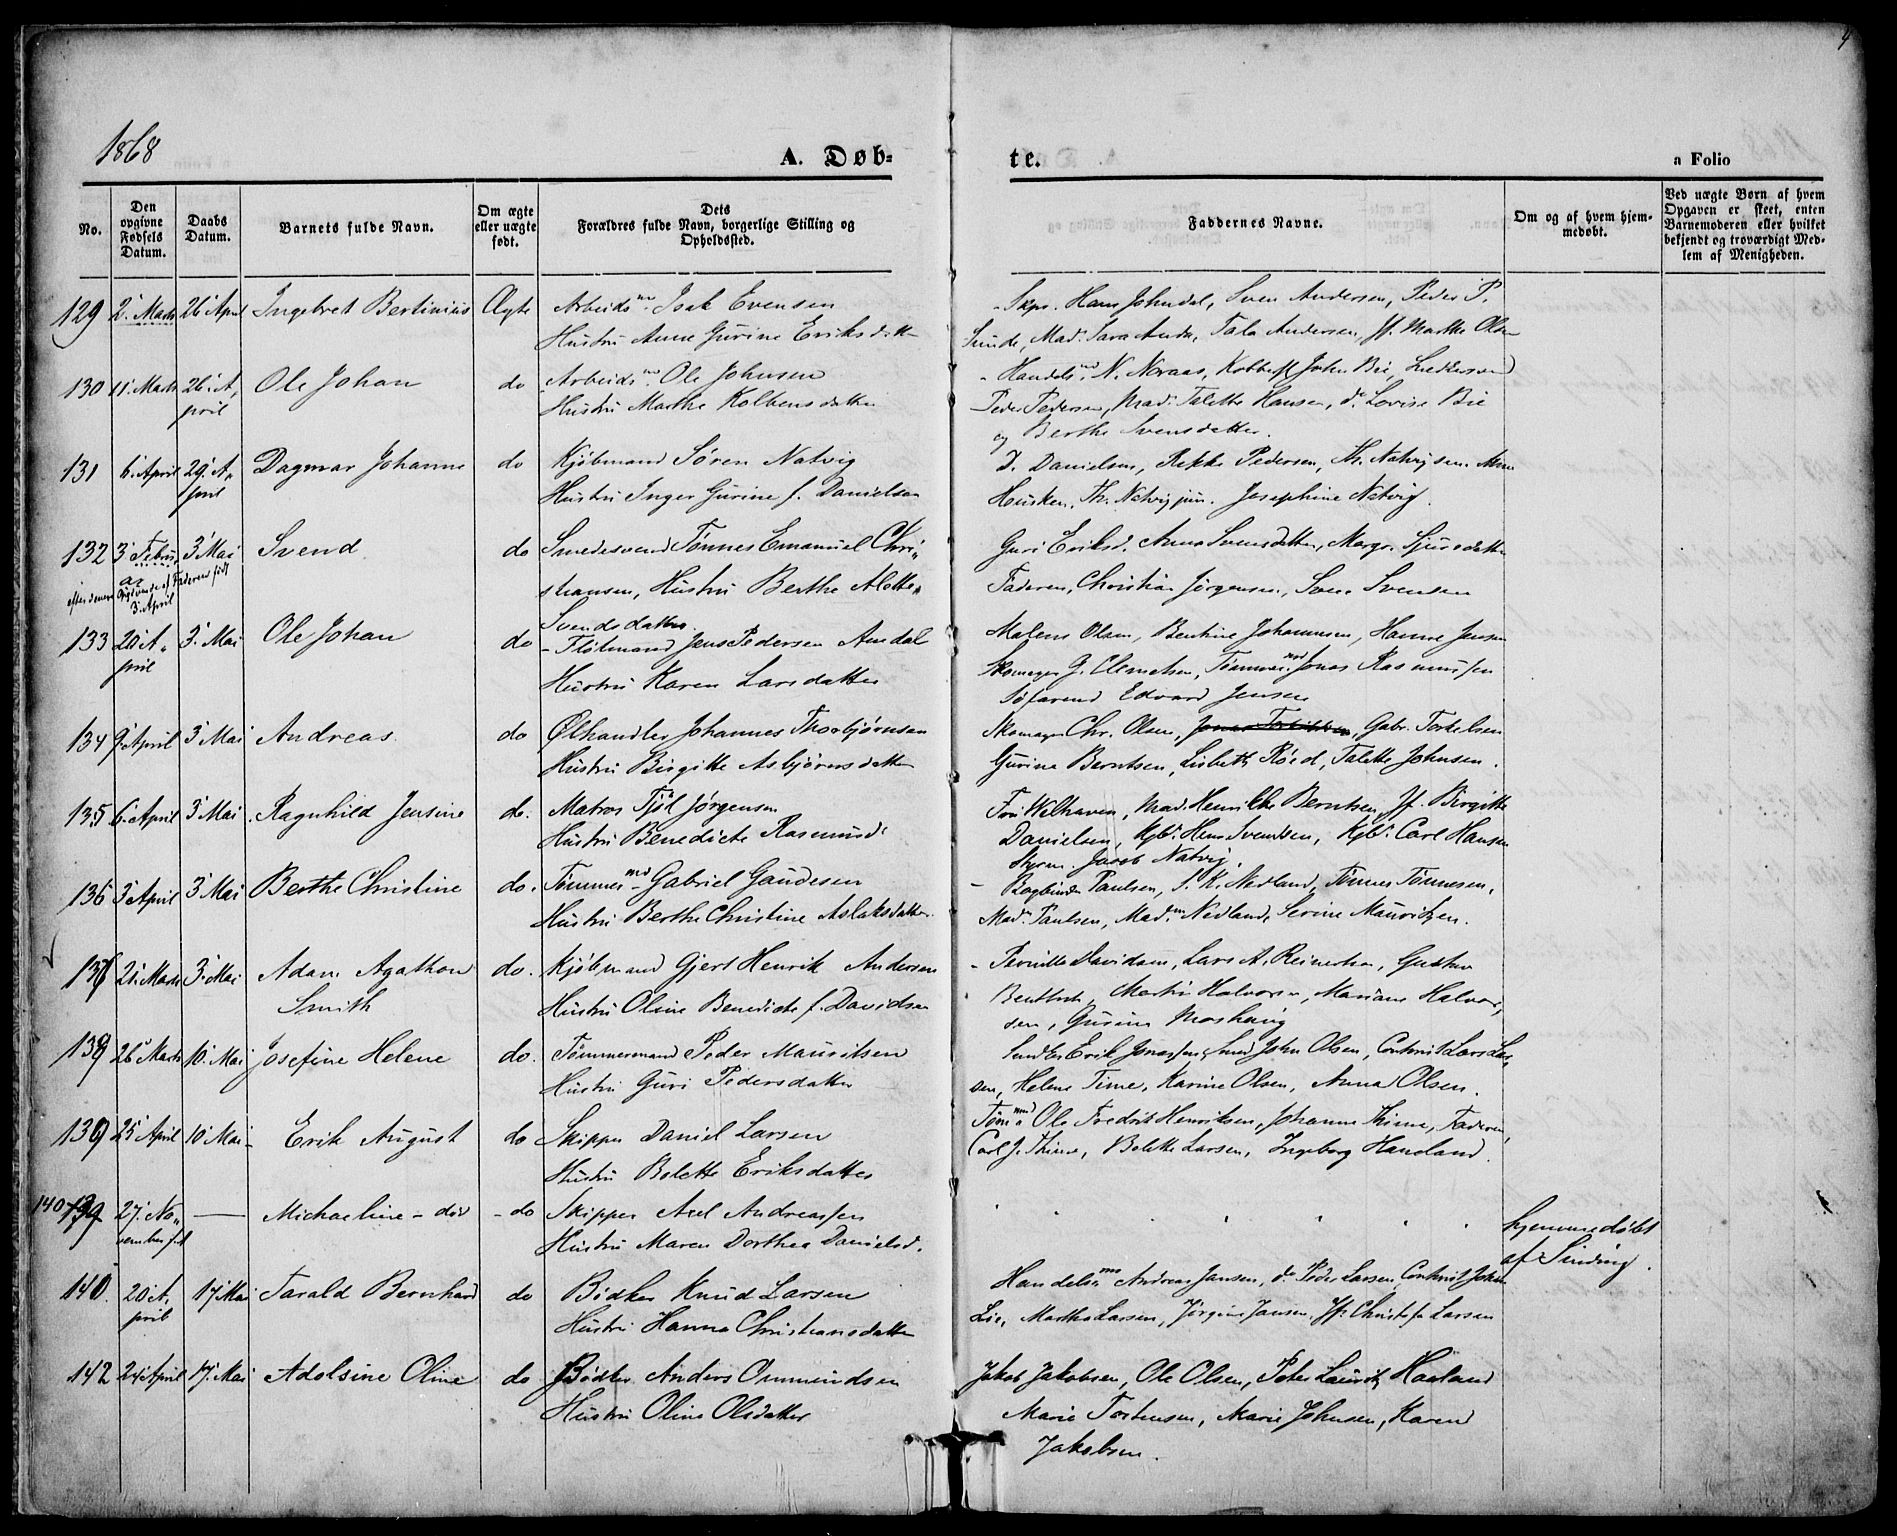 1868
A. Døb-
te.
a Folio
No.
Den opgivne Fødsels Datum.
Daabs Datum.
Barnets fulde Navn.
Om ægte eller uægte født.
Dets
Forældres fulde Navn, borgerlige Stilling og
Opholdssted.
Faddernes Navne.
Om og af hvem hjem-
medøbt.
Ved uægte Børn af hvem
Opgaven er skeet, enten
Barnemoderen eller hvilket
bekjendt og troværdigt Med-
lem af Menigheden.
129 2. Marts 26 April Ingebret Bertinius Ægte Arbeidsm. Isak Evensen
Hustru Anne Gurine Eriksdatter
Hans Johndal, Sven Andersen, Peder P.
Sunde, Mad. Sara Tala Andersen, Jf. Marthe Olsen
130 11. Marts 26. A- Ole Johan do Arbeidsm. Ole Johnsen
pril Hustru Marthe Kolbensdatter
Handelsmd N. Noraas, John Bie,
Peder Pedersen, Mad. Talette Hansen, do Lovise Bie
og Berthe Svensdatter.
131 6 April 29. A- Dagmar Johanne do Kjøbmand Søren Natvig
pril Hustru Inger Gurine f. Danielsen
D. Danielsen, Rikke Pedersen, Th. Natvig sen.
Housken, Th. Natvig jun. Josephine Natvig.
132 3 Febru- 3 Mai Svend do Smedesvend Tønnes Emanuel Chri-
ar
efter denne Opgivende af Faderen født
3. April
stiansen, Hustru Berthe Alette
Svendsdatter
Guri Eriksd. Anna Svensdatter, Margr. Sjursdatter
Faderen, Christian Jørgensen, Sven Svensen
133 20 A- 3. Mai Ole Johan do Fløtmand Jens Pedersen Aredal
pril Hustru Karen Larsdatter
Malene Olsen, Bentine Johannesen, Hanne Jensen
Skomager G. Clemetsen, Tømmermd Jonas Rasmussen
Søfarend Edvard Jensen
134 9 April 3 Mai Andreas do Ølhandler Johannes Thorbjørnsen
Hustru Birgitte Asbjørnsdatter
Skomager Chr. Olsen, Gabr. Torkelsen
Gurine Berntsen, Lisbeth Røed, Talette Johnsen.
135 6 April 3 Mai Ragnhild Jensine do. Matros Tjøl Jørgensen
Hustru Benedicte Rasmusd.
Fru Welhaven, Mad. Henrikke Berntsen, Jf. Birgitte
Danielsen, Kjbd. Hans Svendsen, Kjbd. Carl Hansen
Styrm. Jacob Natvig.
136 3 April 3 Mai Berthe Christine do. Tømmermd Gabriel Gaudesen
Hustru Berthe Christine Aslaksdatter.
Bogbinder Paulsen, S. K. Nedland, Tønnes Tønnesen,
Mad. Paulsen, Mad. Nedland, Serine Mauritzen.
137 21. Marts 3. Mai Adam Agathon do. Kjøbmand Gjert Henrik Andersen
Smith Hustru Olsine Benedicte f. Davidsen
Pernille Davidsen, Lars A. Reinertsen, Gustav
Berttsch, Martin Halvorsen, Mariane Halvor-
sen, Gurine Moshaug
138 26 Marts 10. Mai Josefine Helene do. Tømmermand Peder Mauritsen
Hustru Guri Pedersdatter
Erik Jonassen, Smed John Olsen, Contorist Lars Lar-
sen, Helene Time, Karine Olsen, Anna Olsen.
139 25 April 10 Mai Erik August do Skipper Daniel Larsen
Hustru Bolette Eriksdatter
Tømmd Ole Fredrik Henriksen, Johanne Thime, Faderen,
Carl J. Thime, Bolette Larsen, Ingeborg Haneland.
140 139 27. No- — Michaeline - død - do Skipper Axel Andreassen
vember f. A. Hustru Maren Dorthea Danielsd.
hjemmedøbt
af Sinding.
140 20 A- 17 Mai Tarald Bernhard do Bødker Knud Larsen
pril Hustru Hanna Christiansdatter
Handelsm Andreas Jansen, do Peder Larsen, Contorist Johan
Lie, Martha Larsen, Jørgine Jansen, Jf. Larsen
142 24 April 17. Mai Adolsine Oline do Bødker Anders Ommundsen
Hustru Oline Olsdatter
Jakob Jakobsen, Ole Olsen, Peter Laurits Haaland
Marie Torstensen, Marie Johnsen, Karen
Jakobsen.